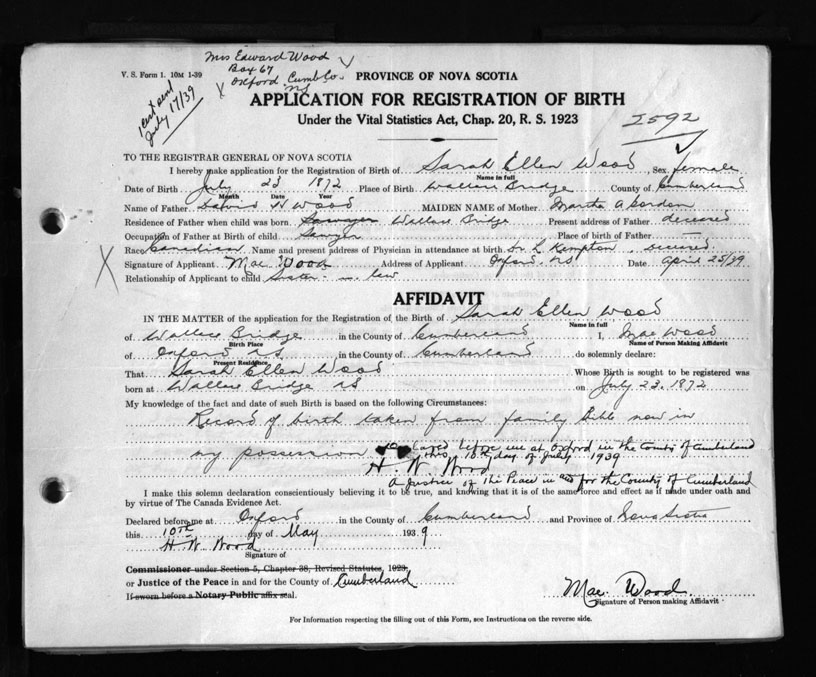 Mrs Edward Wood
Box 67
Oxford Cumb Co.
NS
V. S. Form 1. 10M 1-39
July 17/39
PROVINCE OF NOVA SCOTIA
APPLICATION FOR REGISTRATION OF BIRTH
Under the Vital Statistics Act, Chap. 20, R. S. 1923
2592
TO THE REGISTRAR GENERAL OF NOVA SCOTIA
I hereby make application for the Registration of Birth of Sarah Ellen Wood Sex female
Name in full
Date of Birth July 23 1872 Place of Birth Wallace Bridge County of Cumberland
Month Date Year
Name of Father N Wood MAIDEN NAME of Mother Martha A Gordon
Residence of Father when child was born Sawyer Wallace Bridge Present address of Father deceased
Occupation of Father at Birth of child Sawyer Place of birth of Father —
Race Canadian Name and present address of Physician in attendance at birth Dr. L Kempton, deceased
X Signature of Applicant Mae Wood Address of Applicant Oxford NS Date April 25/39
Relationship of Applicant to child Sister-in law
AFFIDAVIT
IN THE MATTER of the application for the Registration of the Birth of Sarah Ellen Wood
Name in full
of Wallace Bridge in the County of Cumberland I, Mae Wood
Birth Place Name of Person Making Affidavit
of Oxford NS in the County of Cumberland do solemnly declare:
Present Residence
That Sarah Ellen Wood Whose Birth is sought to be registered was
born at Wallace Bridge NS on July 23, 1872
My knowledge of the fact and date of such Birth is based on the following Circumstances:
Record of birth taken from family Bible now in
my possession before me at Oxford in the County of Cumberland
this 10th day of July 1939
H. W. Wood
A Justice of the Peace in and for the County of Cumberland
I make this solemn declaration conscientiously believing it to be true, and knowing that it is of the same force and effect as if made under oath and
by virtue of The Canada Evidence Act.
Declared before me at Oxford in the County of Cumberland and Province of Nova Scotia
this 10th day of May 1939
H. W. Wood
Signature of
Commissioner under Section 5, Chapter 38, Revised Statutes, 1923.
or Justice of the Peace in and for the County of Cumberland
If sworn before a Notary Public affix seal.
Mae Wood
Signature of Person making Affidavit
For Information respecting the filling out of this Form, see Instructions on the reverse side.